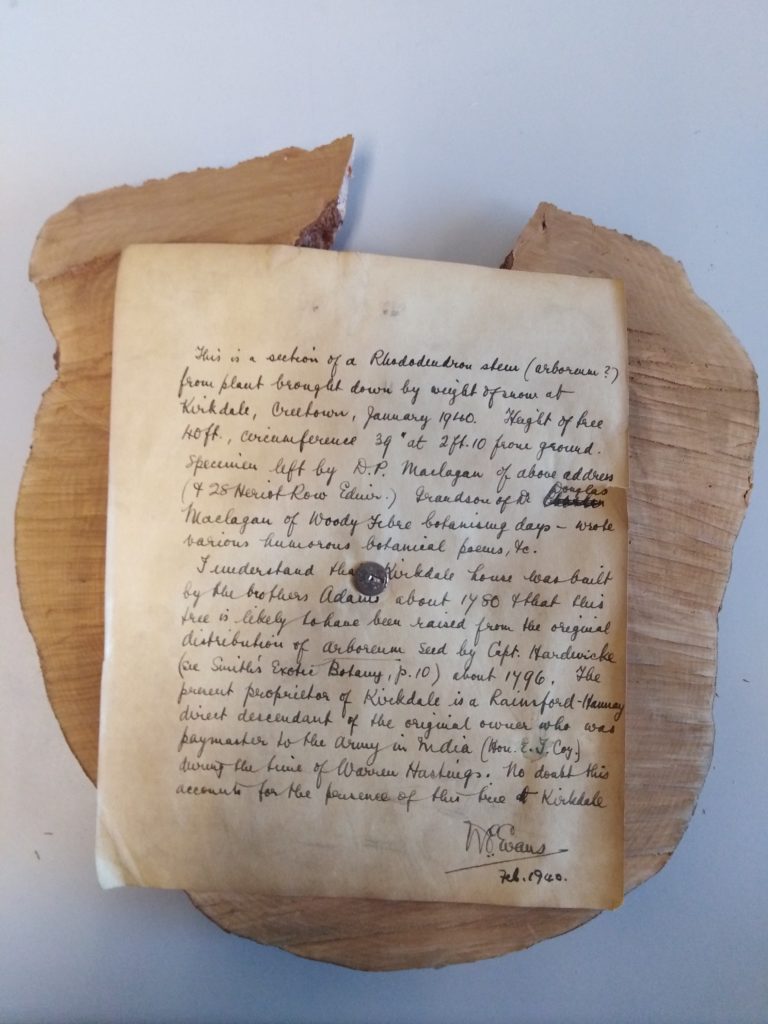 This is a section of a Rhododendron stem (arboreum?)
from plant brought down by weight of snow at
Kirkdale, Creetown, January 1940. Height of tree
40ft., circumference 39" at 2ft.10 from ground.
Specimen left by D.P. Maclagan of above address
(& 28 Heriot Row Edinr.) Grandson of Dr Douglas
Maclagan of Woody Fibre botanising days – wrote
various humorous botanical poems, &c.
I understand tha Kirkdale house was built
by the brothers Adams about 1780 & that this
tree is likely to have been raised from the original
distribution of arboreum seed by Capt. Hardwicke
(see Smith's Exotic Botany, p.10) about 1796. The
present proprietor of Kirkdale is a Rainsford-Hannay
direct descendant of the original owner who was
paymaster to the Army in India (Hon. E. I. Coy.)
during the time of Warren Hastings. No doubt this
accounts for the presence of this tree at Kirkdale
W.E.Evans
Feb. 1940.